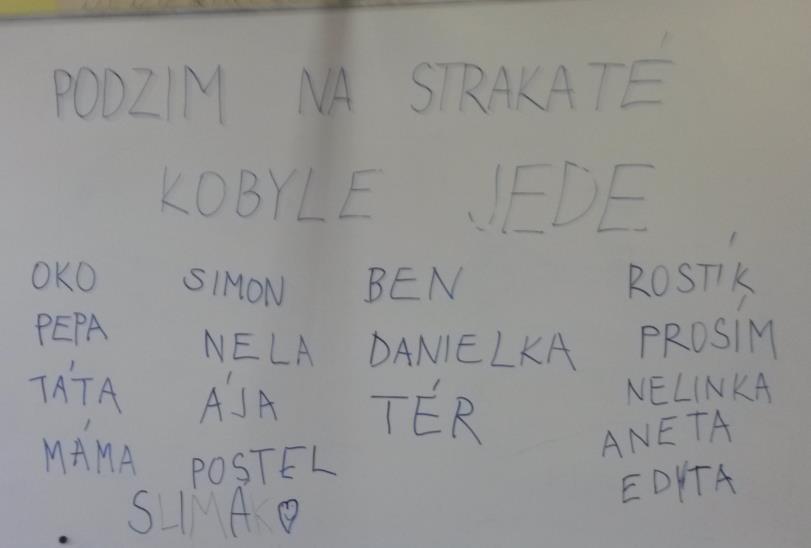 PODZIM NA STRAKATÉ
KOBYLE JEDE
OKO
PEPA
TÁTA
MÁMA
SIMON
NELA
ÁJA
POSTEL
SLIMÁK
BEN
DANIELKA
TÉR
ROSTÍK
PROSÍM
NELINKA
ANETA
EDYTA